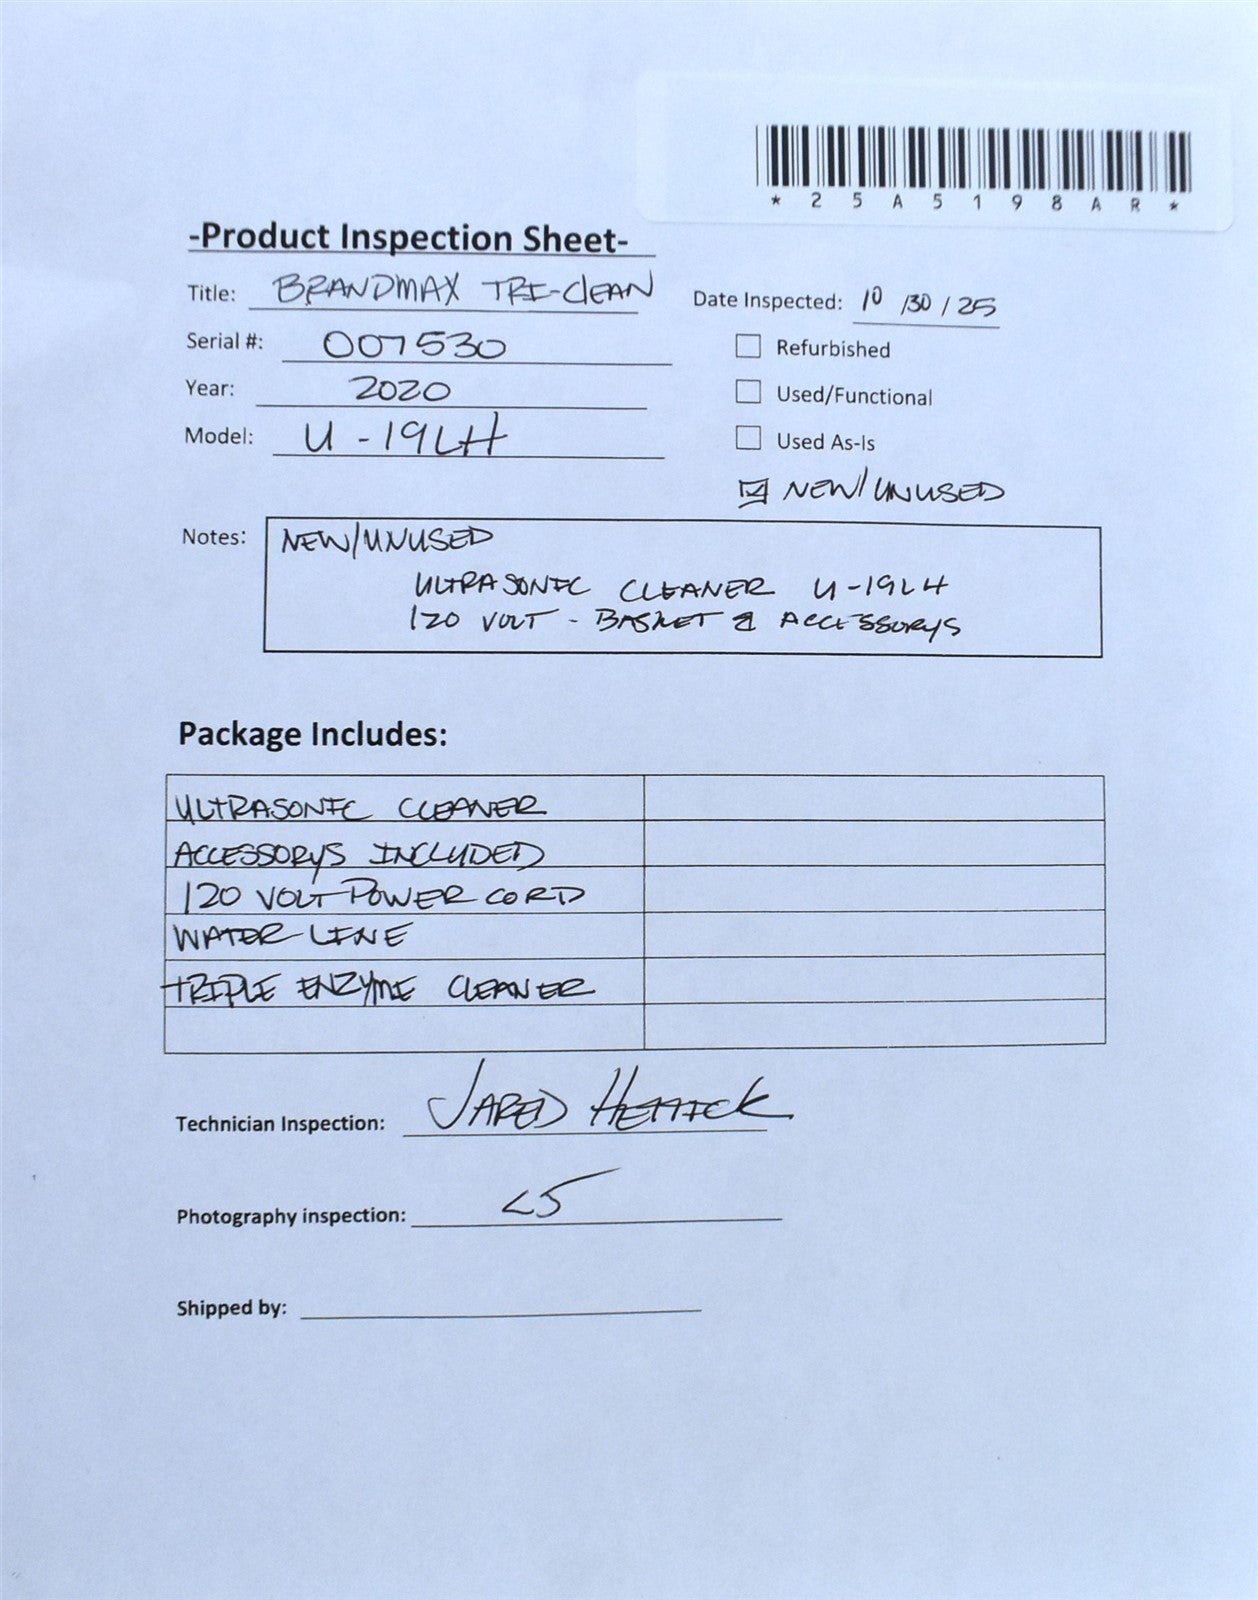 *25A5198AR*
-Product Inspection Sheet-
Title: BRANDMAX TRI-CLEAN
Date Inspected: 10/30/25
Serial #: 007530
Refurbished
Year: 2020
Used/Functional
Model: U-19LH
Used As-Is
NEW/UNUSED
Notes: NEW/UNUSED
ULTRASONIC CLEANER U-19LH
120 VOLT - BASKET & ACCESSORYS
Package Includes:
ULTRASONIC CLEANER
ACCESSORYS INCLUDED
120 VOLT POWER CORD
WATER LINE
TRIPLE ENZYME CLEANER
Technician Inspection: JARED
Photography inspection:
Shipped by: